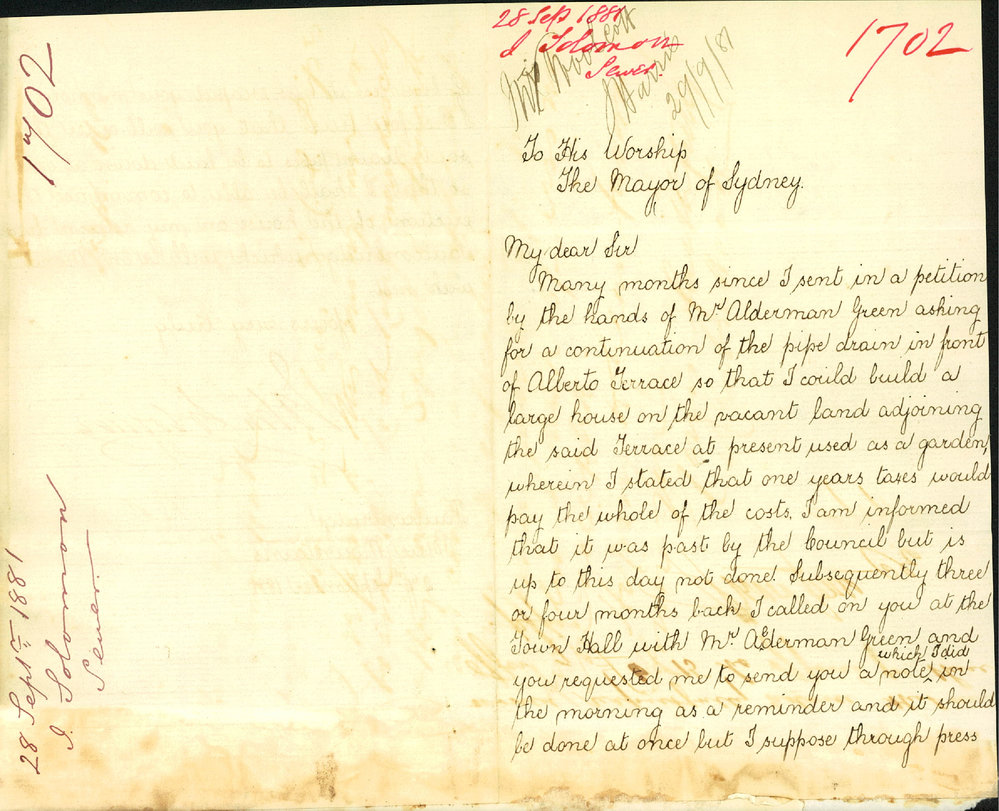 1702
28 Sept 1881
I. Solomon
Sewer.
28 Sep 1881
I Solomon
Sewer.
1702
29/9/81
To His Worship
The Mayor of Sydney.
My dear Sir
Many months since I sent in a petition
by the hands of Mr Alderman Green asking
for a continuation of the pipe drain in front
of Alberto Terrace so that I could build a
large house on the vacant land adjoining
the said Terrace at present used as a garden,
wherein I stated that one years taxes would
pay the whole of the costs. I am informed
that it was past by the Council but is
up to this day not done. Subsequently three
or four months back I called on you at the
Town Hall with Mr Alderman Green and
you requested me to send you a note which I did in
the morning as a reminder and it should
be done at once but I suppose through press